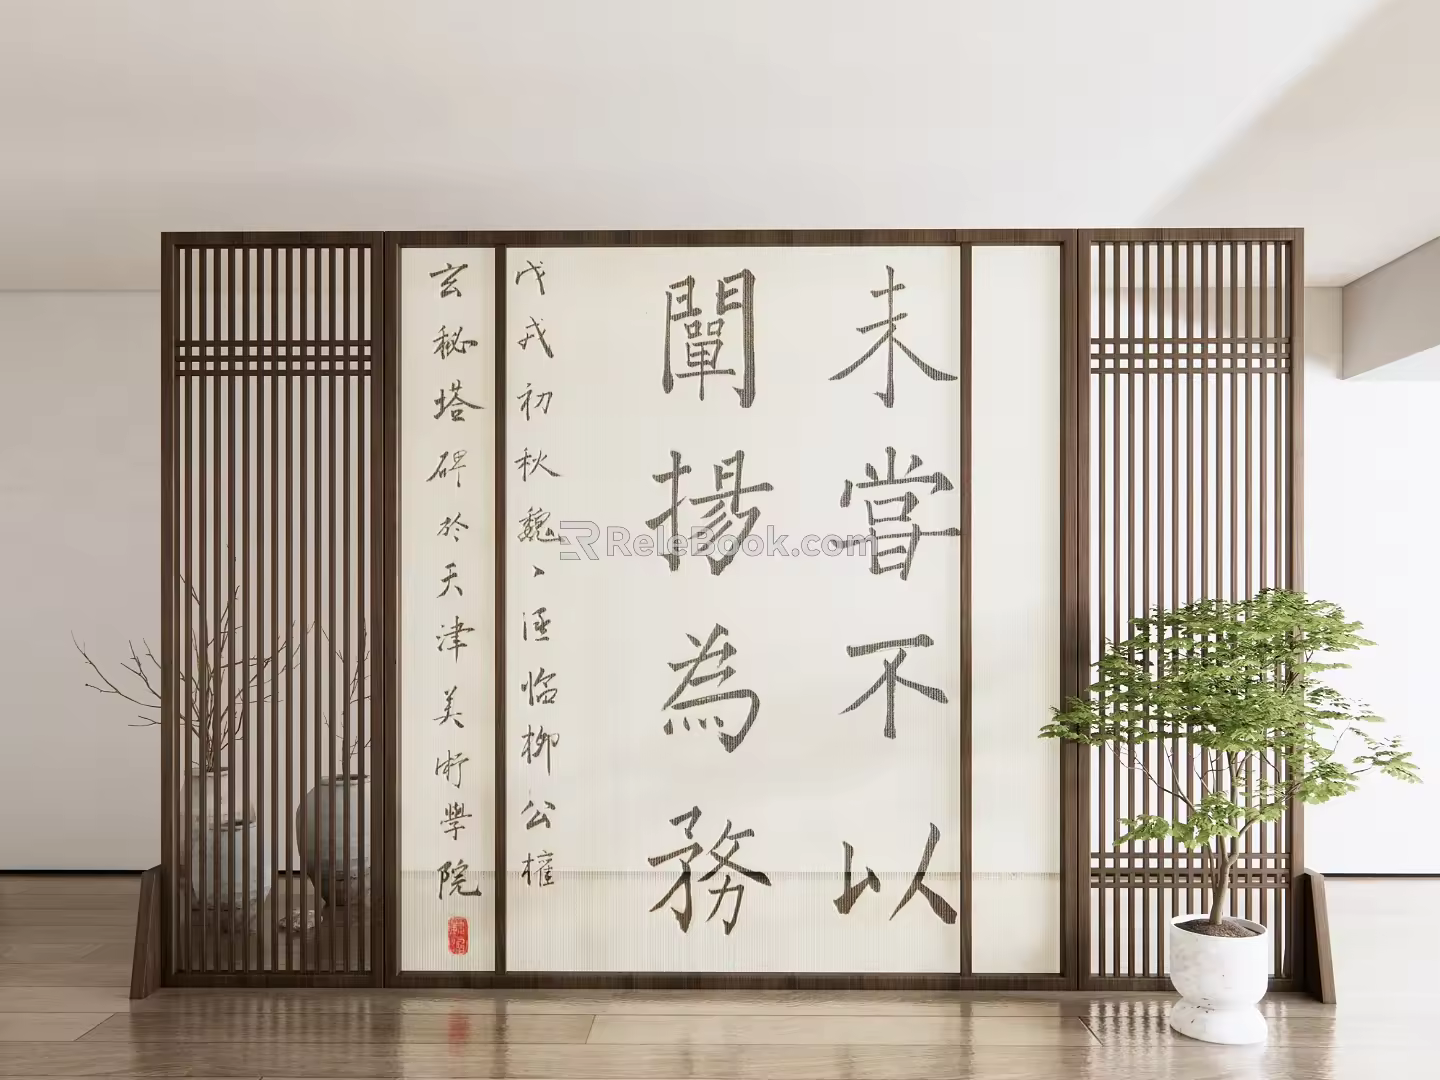 未嘗不以
闡揚為務
戊戌初秋魏、涵临柳公權
玄秘塔碑於天津美術學院
ReleBook.com